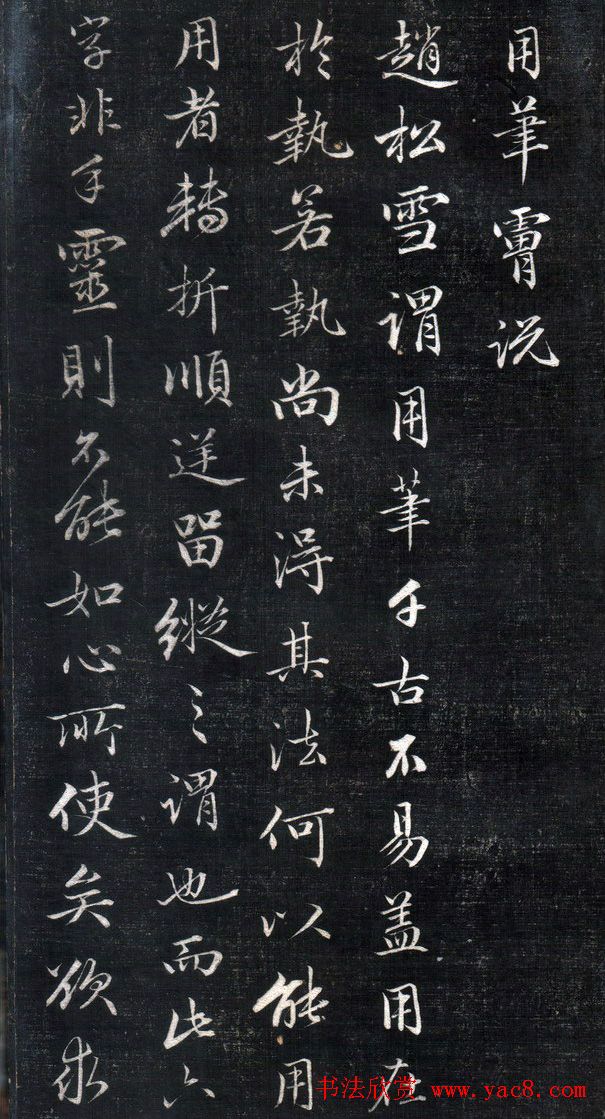 用筆說
趙松雪謂用筆千古不易盖用在
於執若執尚未得其法何以能用
用者轉折順逆留縱之謂也而此六
字非手靈則不能如心所使矣欲求
书法欣赏 www.yac8.com